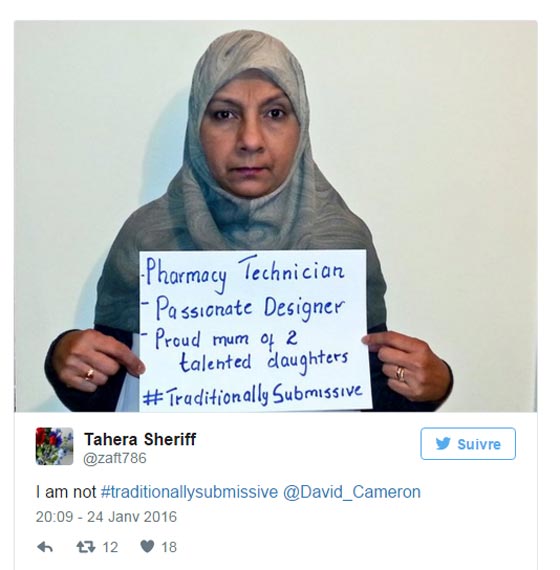 - Pharmacy Technician
- Passionate Designer
- Proud mum of 2
talented daughters
#TraditionallySubmissive
Tahera Sheriff
@zaft786
Suivre
I am not #traditionallysubmissive @David_Cameron
20:09 - 24 Janv 2016
12
18